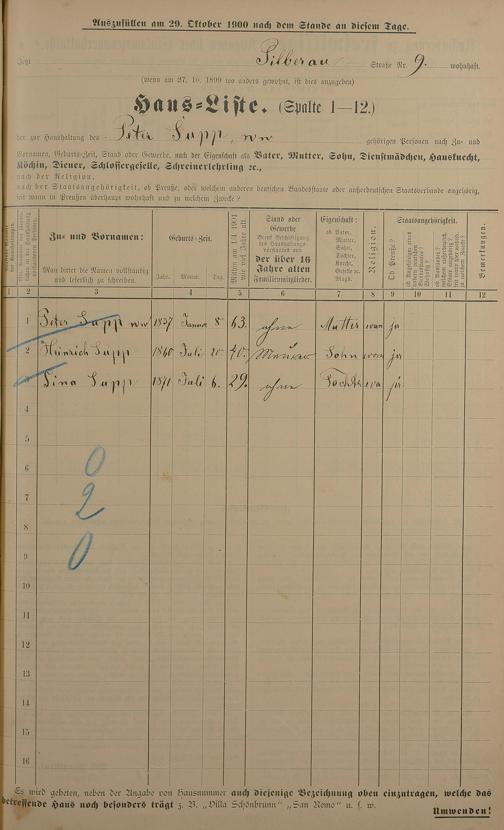 Auszufüllen am 29. Oktober 1900 nach dem Stande an diesem Tage.
Jetzt Silberau Straße Nr. 9. wohnhaft.
(wenn am 27. 10. 1899 wo anders gewohnt, ist dies anzugeben)
Haus-Liste. (Spalte 1—12.)
der zur Haushaltung des Peter Supp, ww gehörigen Personen nach Zu- und
Vornamen, Geburts-Zeit, Stand oder Gewerbe, nach der Eigenschaft als Vater, Mutter, Sohn, Dienstmädchen, Hausknecht,
Köchin, Diener, Schlossergeselle, Schreinerlehrling ꝛc.,
nach der Religion,
nach der Staatsangehörigkeit, ob Preuße, oder welchem anderen deutschen Bundesstaate oder außerdeutschen Staatsverbande angehörig,
seit wann in Preußen überhaupt wohnhaft und zu welchem Zwecke?
Zu- und Vornamen:
Man bittet die Namen vollständig und leserlich zu schreiben.
Geburts-Zeit.
Jahr. Monat. Tag.
Mithin am 1/4 1901 wie viel Jahre alt.
Stand oder Gewerbe
der über 16 Jahre alten Familienmitglieder.
Eigenschaft:
ob Vater, Mutter, Sohn, Tochter, Knecht, Geselle ꝛc. Magd.
Religion.
Staatsangehörigkeit.
Ob Preuße?
Bemerkungen.
1 2 3 4 5 6 7 8 9 10 11 12
1 Peter Supp ww 1837 Januar 8 63. ohne Mutter evan ja
2 Heinrich Supp 1860 Juli 20 40. Maurer Sohn evan ja
3 Lina Supp 1871 Juli 6. 29. ohne Tochter eva ja
4
5
6 0
7 2
8
9 0
10
11
12
13
14
15
16
Es wird gebeten, neben der Angabe von Hausnummer auch diejenige Bezeichnung oben einzutragen, welche das
betreffende Haus noch besonders trägt z. B. „Villa Schönbrunn" „San Remo" u. s. w.
Umwenden!